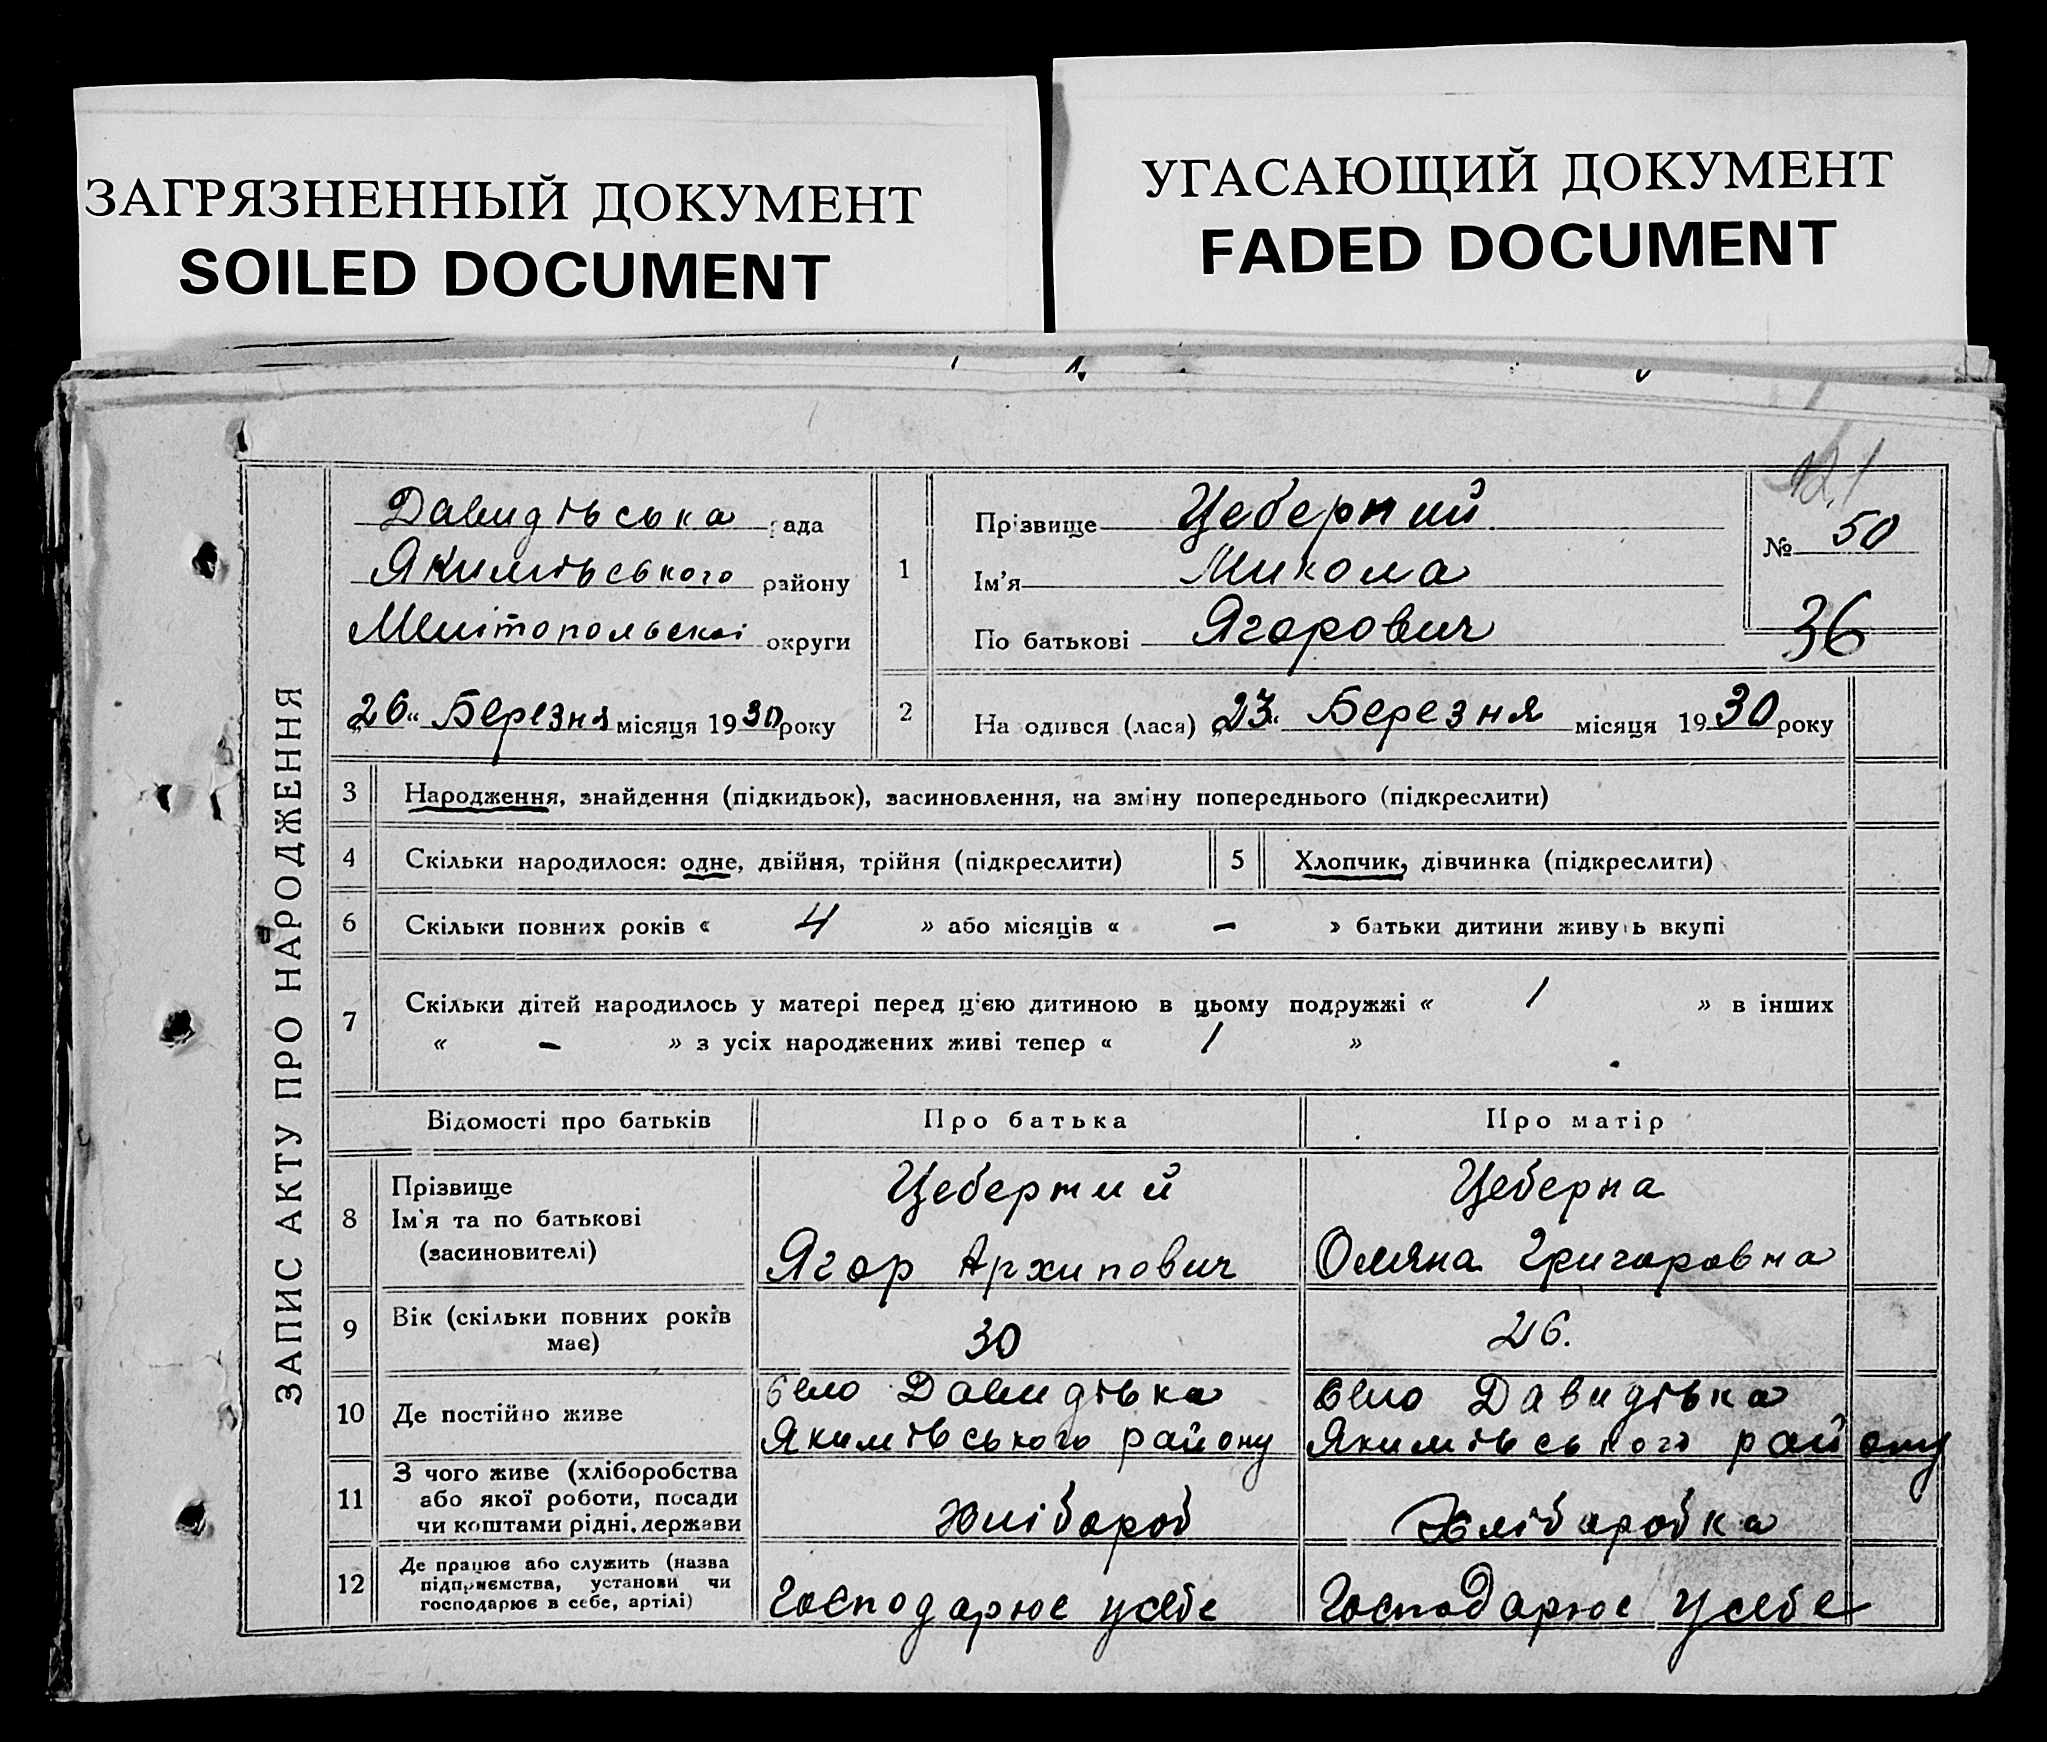 ЗАГРЯЗНЕННЫЙ ДОКУМЕНТ
SOILED DOCUMENT
УГАСАЮЩИЙ ДОКУМЕНТ
FADED DOCUMENT
ЗАПИС АКТУ ПРО НАРОДЖЕННЯ
Давидівська рада
Якимівського району
Мелітопольскої округи
„26“ Березня місяця 1930 року
1
Прізвище Цеберний
Ім’я Микола
По батькові Ягорович
121
№ 50
36
2 На одився (лася) „23“ Березня місяця 1930 року
3 Народження, знайдення (підкидьок), засиновлення, на зміну попереднього (підкреслити)
4 Скільки народилося: одне, двійня, трійня (підкреслити) 5 Хлопчик, дівчинка (підкреслити)
6 Скільки повних років « 4 » або місяців « – » батьки дитини живуть вкупі
7 Скільки дітей народилось у матері перед цією дитиною в цьому подружжі « 1 » в інших
« – » з усіх народжених живі тепер « 1 »
Відомості про батьків Про батька Про матір
8 Прізвище
Ім’я та по батькові
(засиновителі)
Цеберний
Ягор Архипович
Цеберна
Оляна Григоровна
9 Вік (скільки повних років
має)
30
26.
10 Де постійно живе
село Давидівка
Якимівського району
село Давидівка
Якимівського району
11 З чого живе (хліборобства
або якої роботи, посади
чи коштами рідні, держави
Хлібороб
Хліборобка
12 Де працює або служить (назва
підприємства, установи чи
господарює в себе, артілі)
Господарює усебе
Господарює усебе